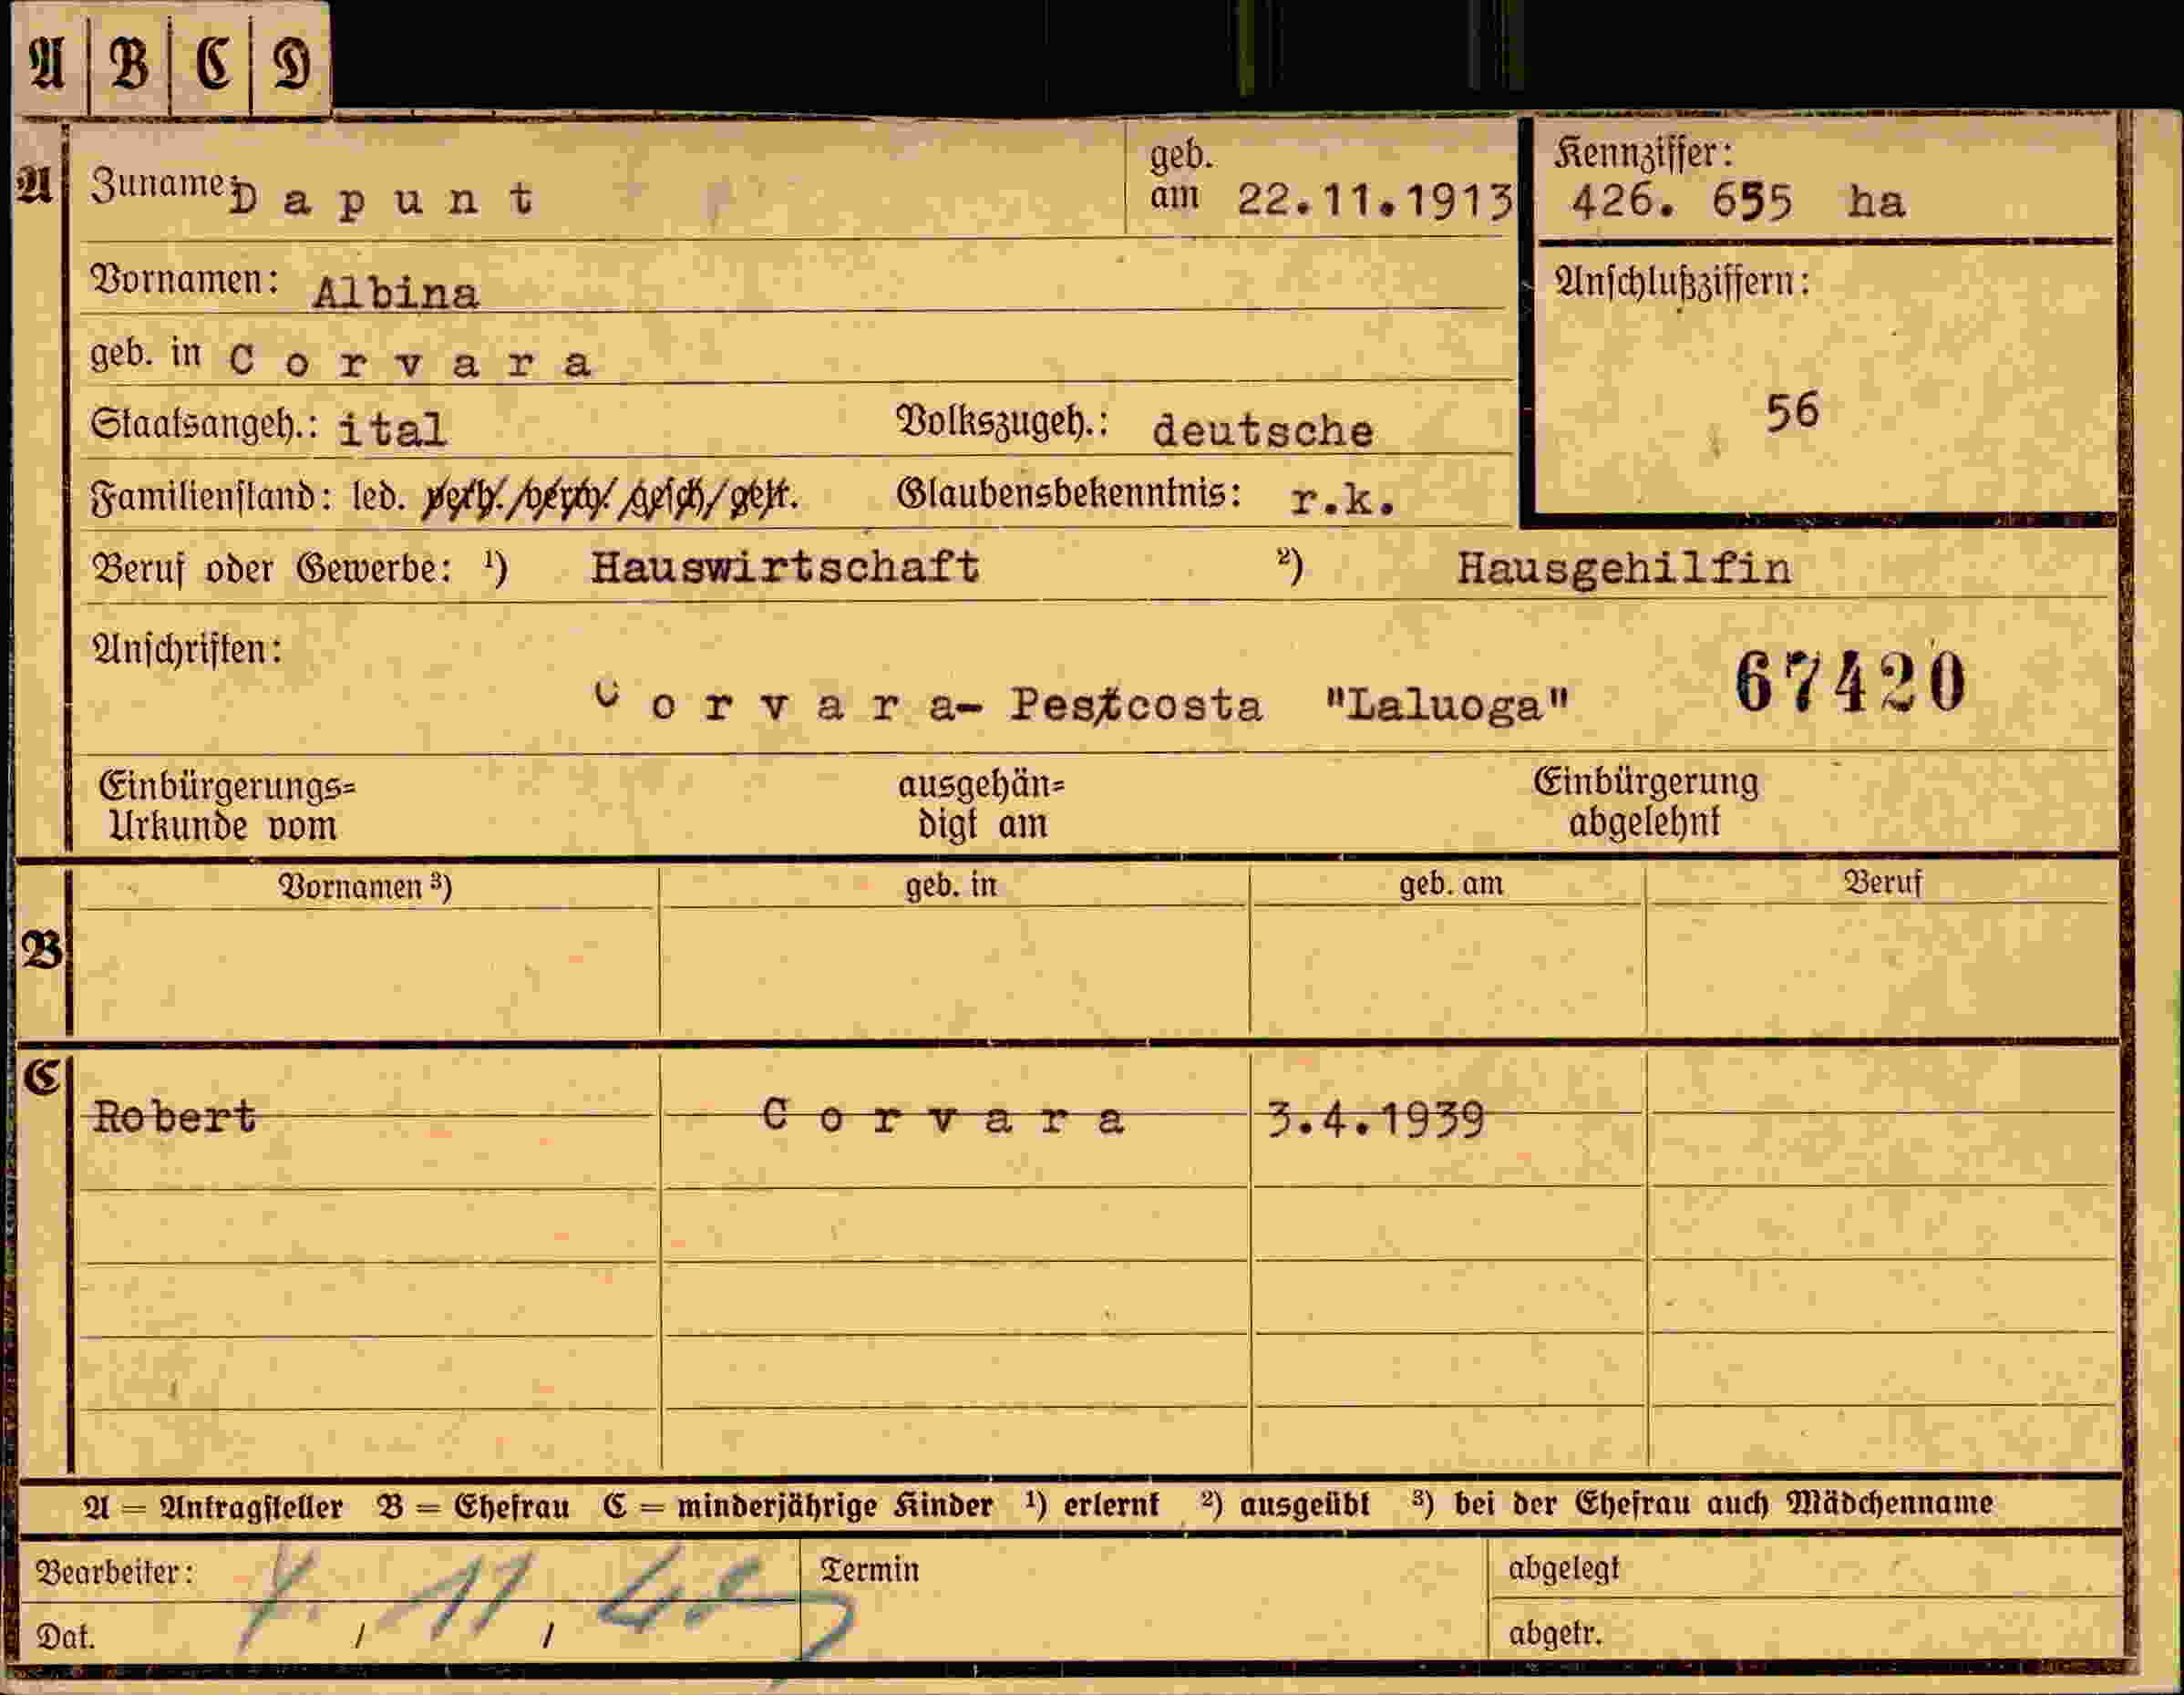 A B C D
A Zuname: D a p u n t geb. am 22.11.1913 Kennziffer: 426. 655 ha
Vornamen: Albina
Anschlußziffern: 56
geb. in C o r v a r a
Staatsangeh.: ital Volkszugeh.: deutsche
Familienstand: led. verh./verw./gesch/getr. Glaubensbekenntnis: r.k.
Beruf oder Gewerbe: ¹) Hauswirtschaft ²) Hausgehilfin
Anschriften:
C o r v a r a- Pescosta "Laluoga" 67420
Einbürgerungs= ausgehän= Einbürgerung
Urkunde vom digt am abgelehnt
Vornamen ³) geb. in geb. am Beruf
B
C
Robert C o r v a r a 3.4.1939
A = Antragsteller B = Ehefrau C = minderjährige Kinder ¹) erlernt ²) ausgeübt ³) bei der Ehefrau auch Mädchenname
Bearbeiter: Termin abgelegt
Dat. / 11 / abgetr.